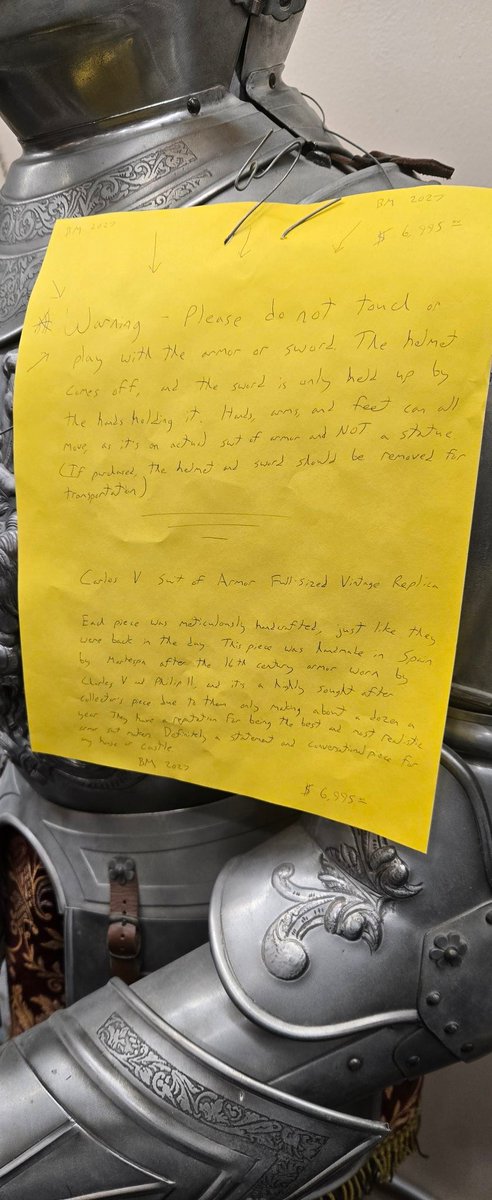 BM 2027
BM 2027
$ 6,995=
Warning - Please do not touch or
play with the armor or sword. The helmet
comes off, and the sword is only held up by
the hands holding it. Hands, arms, and feet can all
move, as it's an actual suit of armor and NOT a statue
(If purchased, the helmet and sword should be removed for
transportation)
Carlos V Suit of Armor Full-sized Vintage Replica
Each piece was meticulously handcrafted, just like they
were back in the day. This piece was handmade in Spain
by Martespa after the 16th century armor worn by
Charles V and Philip II, and it's a highly sought after
collector's piece due to them only making about a dozen a
year. They have a reputation for being the best and most realistic
armor suit makers. Definitely a statement and conversational piece for
any house or castle
BM 2027
$ 6,995=